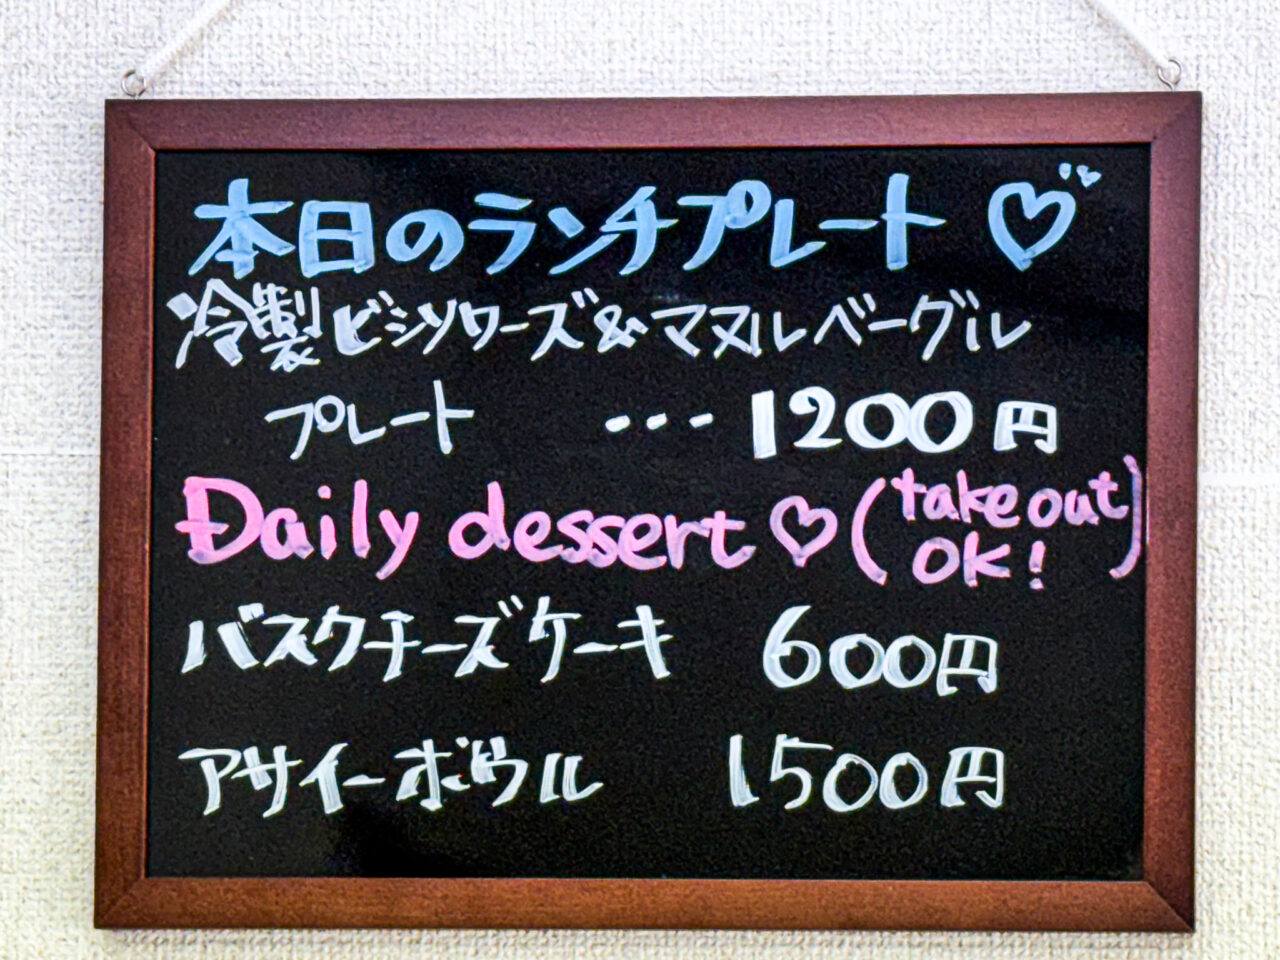 本日のランチプレート♡
冷製ビシソワーズ&マヌルベーグル
プレート ・・・1200円
Daily dessert♡(take out OK!)
バスクチーズケーキ 600円
アサイーボウル 1500円